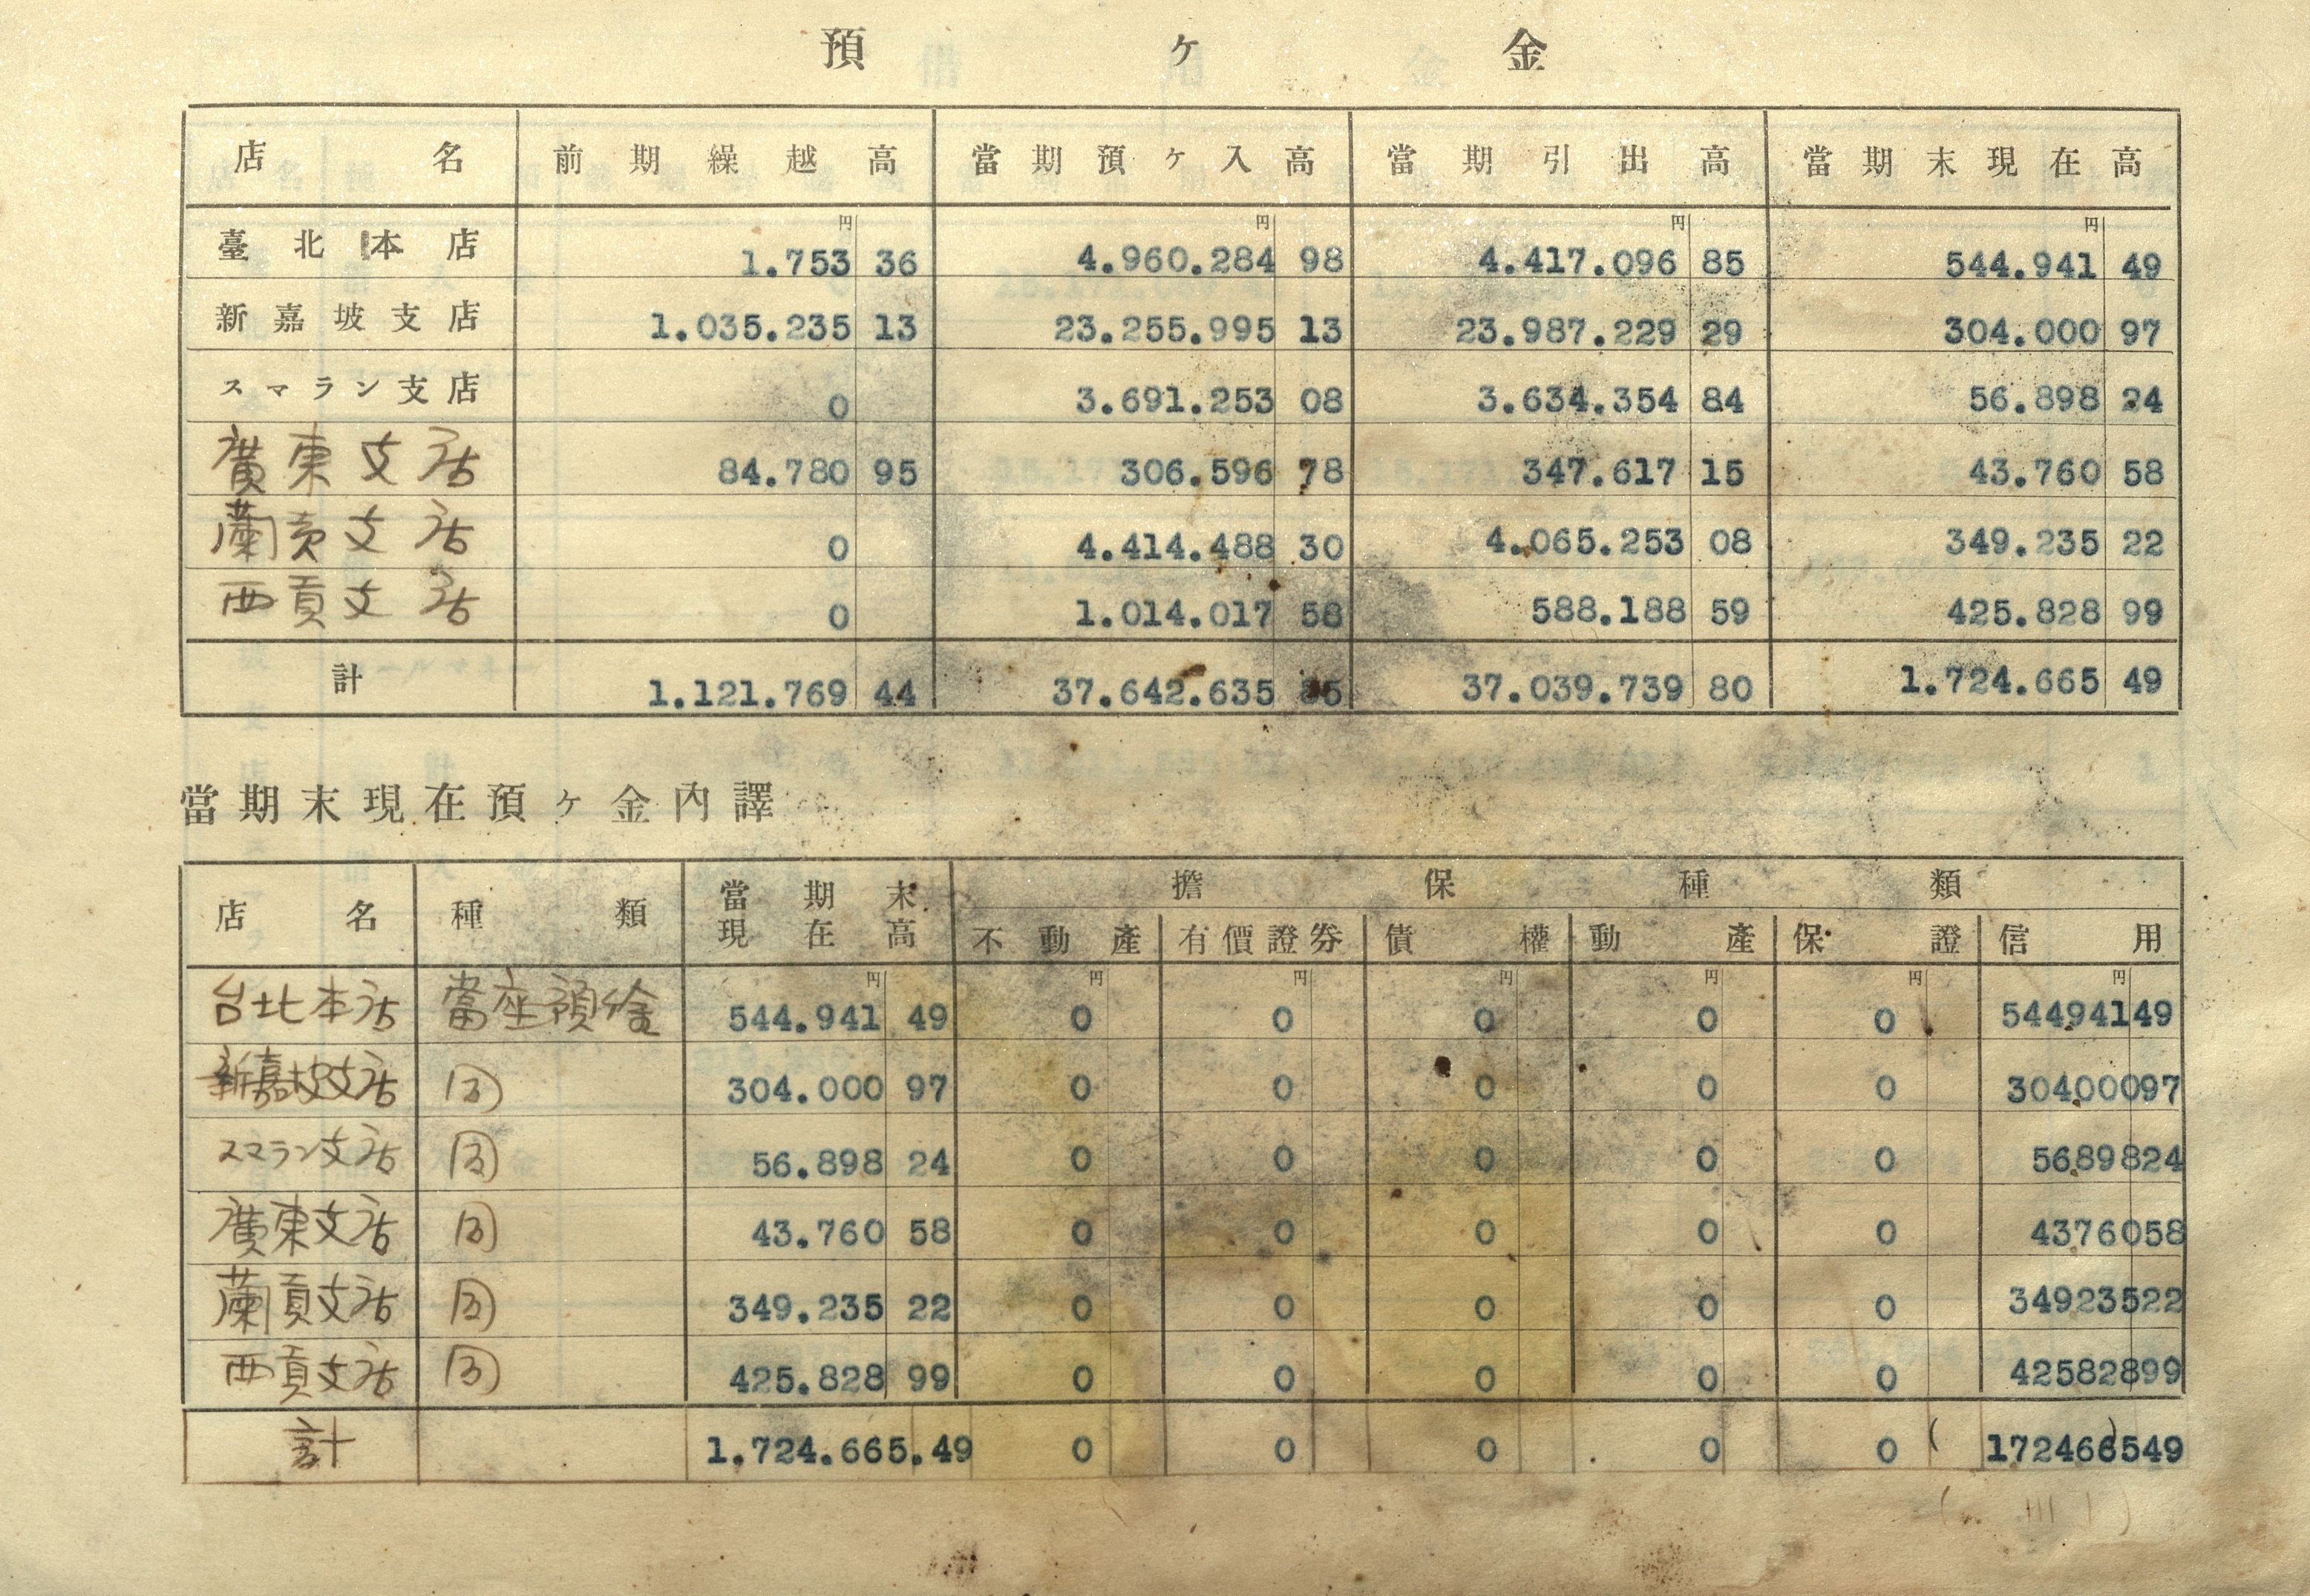 預ケ金
店名 前期繰越高 當期預ケ入高 當期引出高 當期末現在高
円 円 円 円
臺北本店 1.753 36 4.960.284 98 4.417.096 85 544.941 49
新嘉坡支店 1.035.235 13 23.255.995 13 23.987.229 29 304.000 97
スマラン支店 0 3.691.253 08 3.634.354 84 56.898 24
廣東支店 84.780 95 306.596 78 347.617 15 43.760 58
蘭貢支店 0 4.414.488 30 4.065.253 08 349.235 22
西貢支店 0 1.014.017 58 588.188 59 425.828 99
計 1.121.769 44 37.642.635 85 37.039.739 80 1.724.665 49
當期末現在預ケ金內譯
店名 種類 當期末現在高 擔保種類
不動產 有價證券 債權 動產 保證 信用
円 円 円 円 円 円 円
台北本店 當座預ケ金 544.941 49 0 0 0 0 0 54494149
新嘉坡支店 同 304.000 97 0 0 0 0 0 30400097
スマラン支店 同 56.898 24 0 0 0 0 0 5689824
廣東支店 同 43.760 58 0 0 0 0 0 4376058
蘭貢支店 同 349.235 22 0 0 0 0 0 34923522
西貢支店 同 425.828 99 0 0 0 0 0 42582899
計 1.724.665.49 0 0 0 0 0 ( 172466549 )